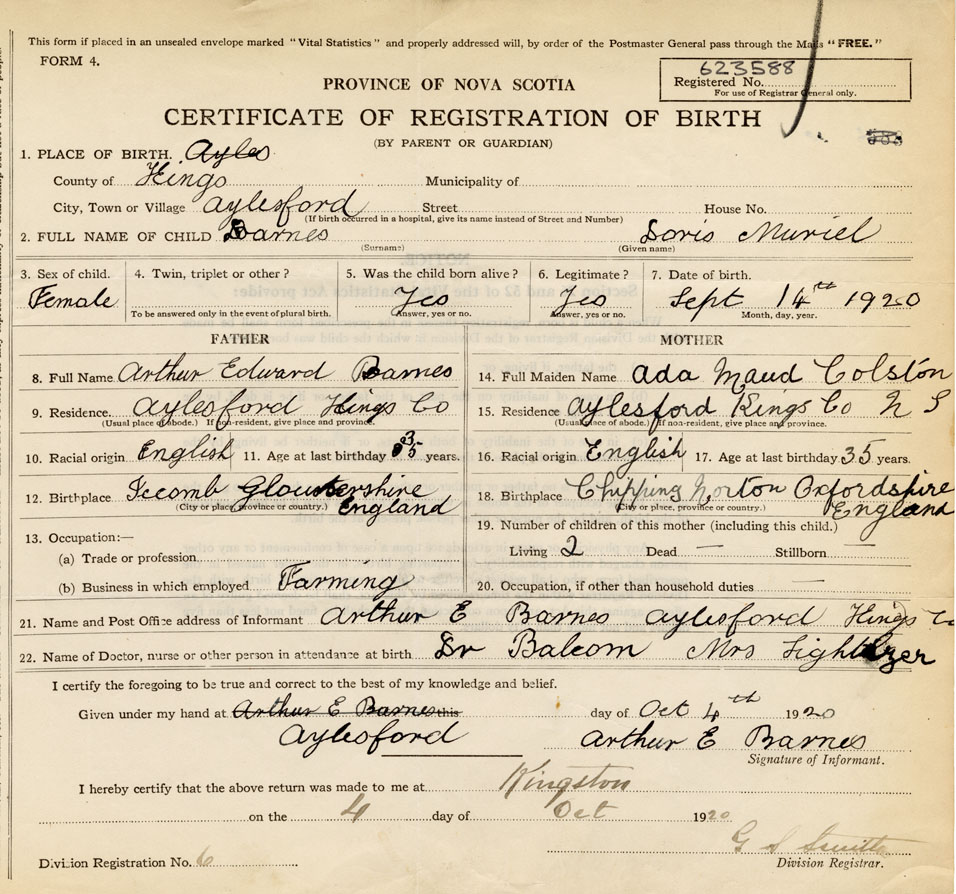 This form if placed in an unsealed envelope marked "Vital Statistics" and properly addressed will, by order of the Postmaster General pass through the Mails "FREE."
FORM 4.
623588
Registered No.
For use of Registrar General only.
PROVINCE OF NOVA SCOTIA
CERTIFICATE OF REGISTRATION OF BIRTH
(BY PARENT OR GUARDIAN)
1. PLACE OF BIRTH. Ayles
County of Kings Municipality of
City, Town or Village Aylesford Street House No.
(If birth occurred in a hospital, give its name instead of Street and Number)
2. FULL NAME OF CHILD Barnes Doris Muriel
(Surname) (Given name)
3. Sex of child. 4. Twin, triplet or other? 5. Was the child born alive? 6. Legitimate? 7. Date of birth.
Female Yes Yes Sept 14th 1920
To be answered only in the event of plural birth. Answer, yes or no. Answer, yes or no. Month, day, year.
FATHER MOTHER
8. Full Name Arthur Edward Barnes
9. Residence. Aylesford Kings Co
(Usual place of abode.) If non-resident, give place and province.
10. Racial origin English 11. Age at last birthday 35 years.
12. Birthplace Iccomb Gloustershire England
(City or place, province or country.)
13. Occupation:—
(a) Trade or profession
(b) Business in which employed Farming
14. Full Maiden Name Ada Maud Colston
15. Residence Aylesford Kings Co N S
(Usual place of abode.) If non-resident, give place and province.
16. Racial origin English 17. Age at last birthday 35 years.
18. Birthplace Chipping Norton Oxfordshire England
(City or place, province or country.)
19. Number of children of this mother (including this child.)
Living 2 Dead — Stillborn —
20. Occupation, if other than household duties —
21. Name and Post Office address of Informant Arthur E Barnes Aylesford Kings Co
22. Name of Doctor, nurse or other person in attendance at birth Dr Balcom Mrs
I certify the foregoing to be true and correct to the best of my knowledge and belief.
Given under my hand at Arthur E Barnes this day of Oct 4th 1920
Aylesford Arthur E Barnes
Signature of Informant.
I hereby certify that the above return was made to me at Kingston
on the 4 day of Oct 1920
G S Smith
Division Registration No. 6 Division Registrar.